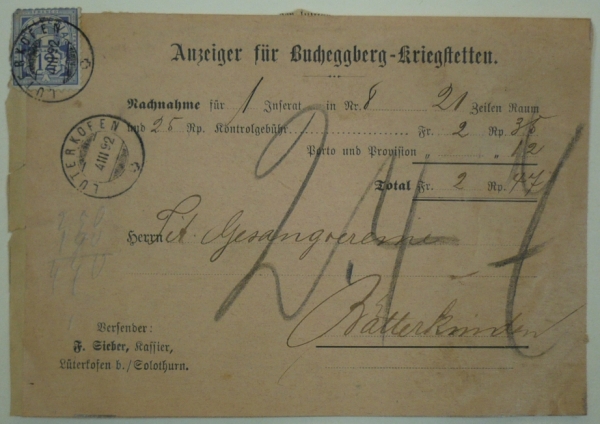 LÜTERKOFEN
4 III 92
12
Anzeiger für Bucheggberg-Kriegstetten.
Nachnahme für 1 Inserat in Nr. 8 21 Zeilen Raum
und 25 Rp. Kontrolgebühr Fr. 2 Rp. 35
Porto und Provision „ „ 12
Total Fr. 2 Rp. 47
LÜTERKOFEN
4 III 92
Herrn Tit. Gesangvereine
Bätterkinden
Versender:
F. Sieber, Kassier,
Lüterkofen b./Solothurn.